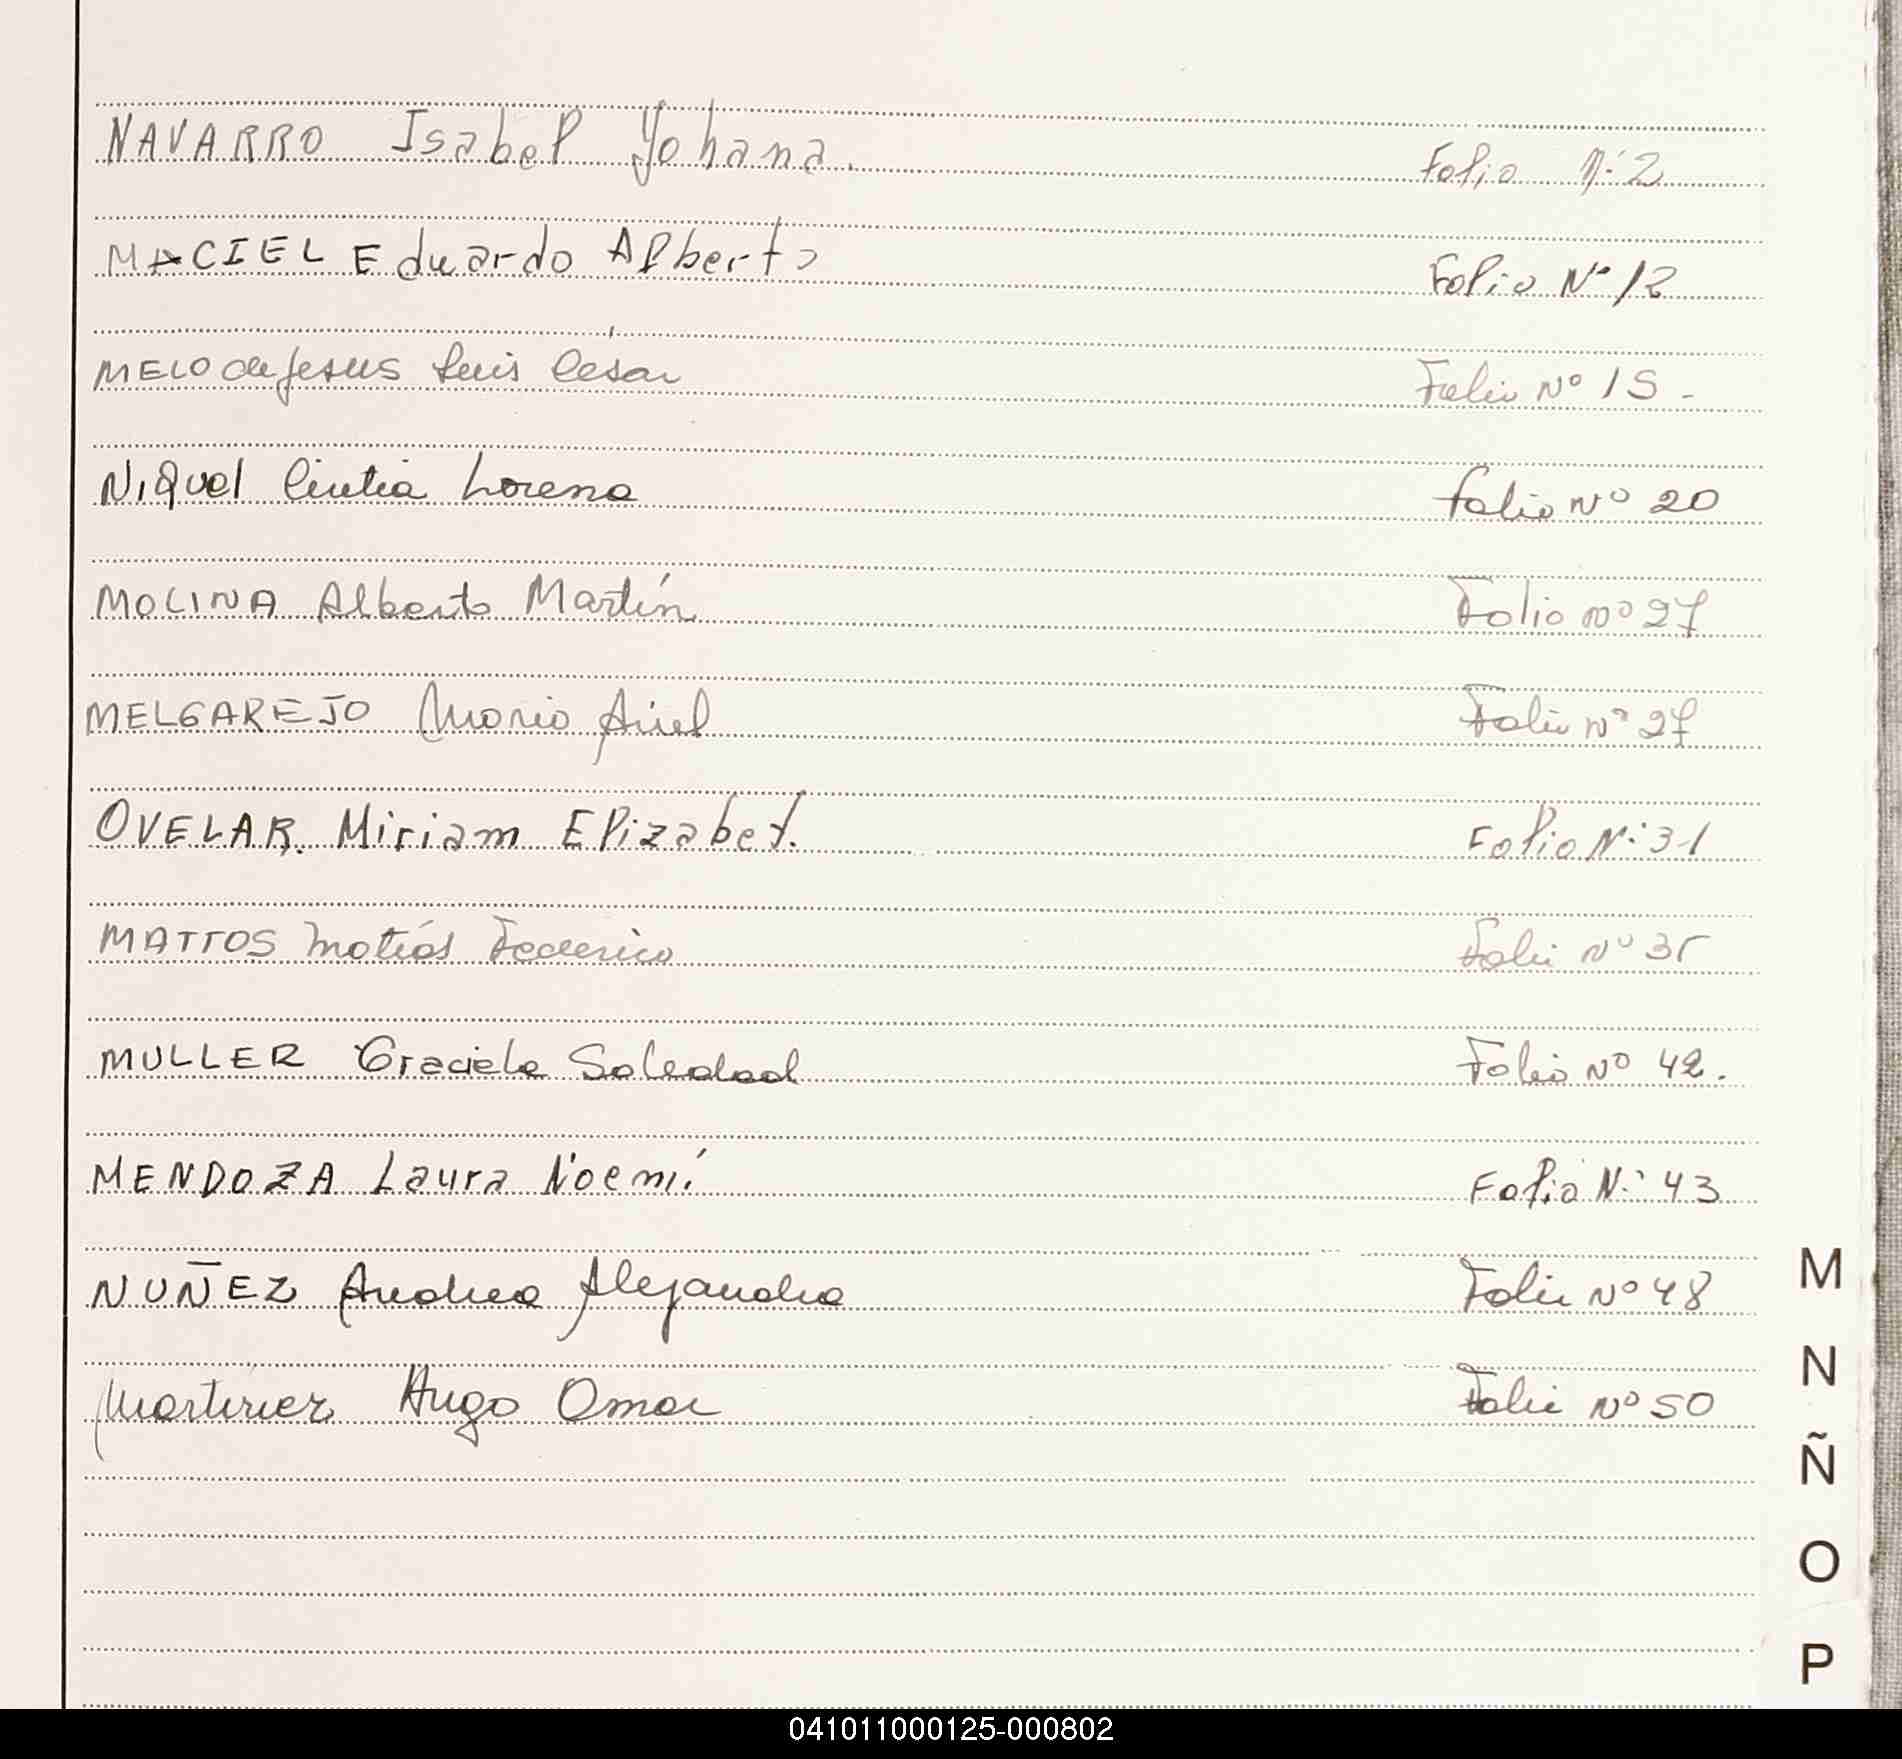 NAVARRO Isabel Yohana. Folio N: 2
MACIEL Eduardo Alberto Folio Nº 12
MELO de Jesus Luis César Folio Nº 15 -
NiQuel Cintia Lorena folio Nº 20
MOLINA Alberto Martín Folio nº 27
MELGAREJO Mario Ariel Folio nº 27
OVELAR. Miriam Elizabet. Folio N: 31
MATTOS Matías Federico Folio Nº 35
MULLER Graciela Soledad Folio Nº 42.
MENDOZA Laura Noemí Folio N: 43
NUÑEZ Andrea Alejandra Folio Nº 48
Martinez Hugo Omar Folio Nº 50
M
N
Ñ
O
P
041011000125-000802